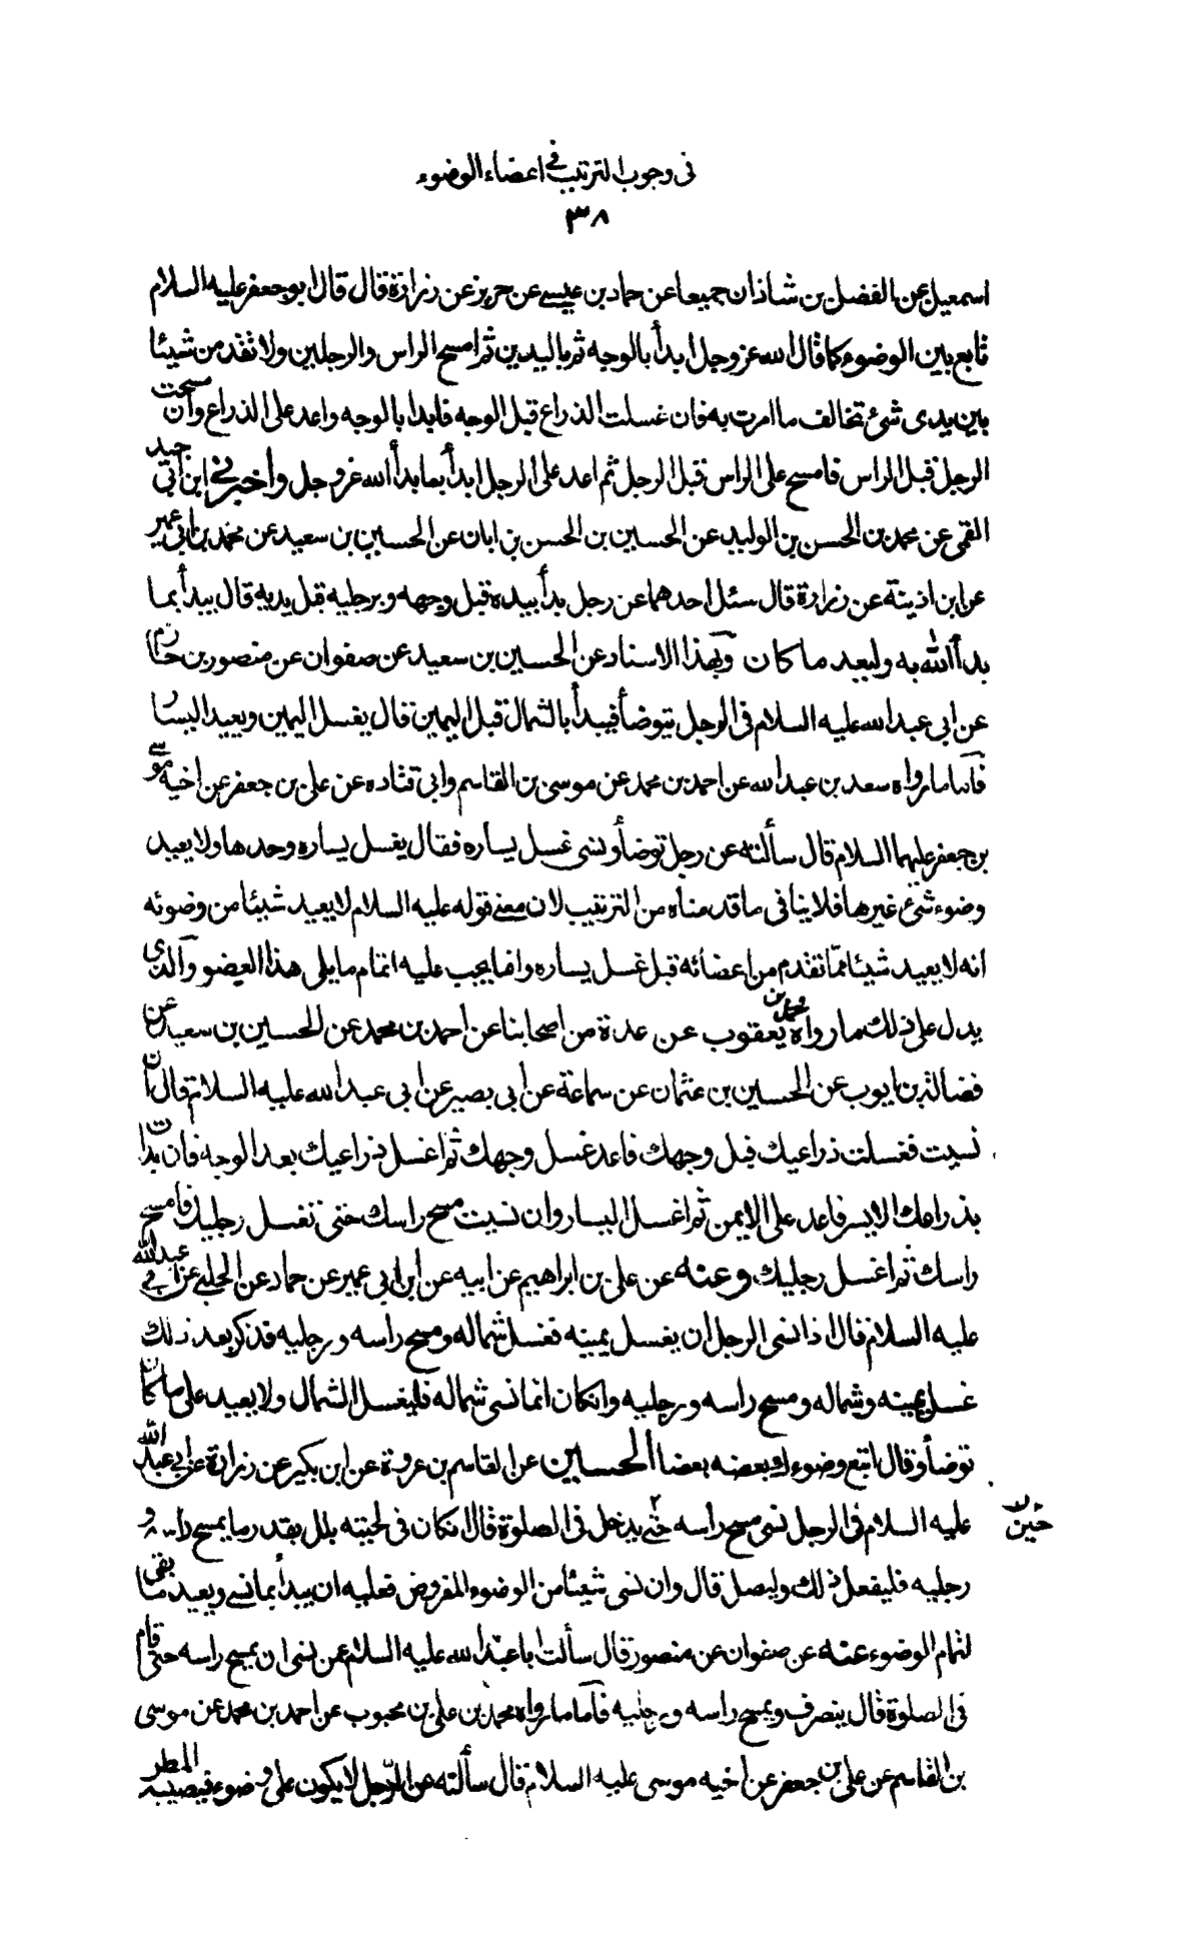 في وجوب الترتيب في اعضاء الوضوء
٣٨
اسمعيل عن الفضل بن شاذان جميعا عن حماد بن عيسى عن حريز عن زرارة قال قال ابو جعفر عليه السلام
تابع بين الوضوء كما قال الله عز وجل ابدأ بالوجه ثم باليدين ثم امسح الراس والرجلين ولا تقدمن شيئا
بين يدى شئ تخالف ما امرت به فان غسلت الذراع قبل الوجه فابدا بالوجه واعد على الذراع وان مسحت
الرجل قبل الراس فامسح على الراس قبل الرجل ثم اعد على الرجل ابدأ بما بدأ الله عز وجل واخبرني ابن ابى جيد
القمى عن محمد بن الحسن بن الوليد عن الحسين بن الحسن بن ابان عن الحسين بن سعيد عن محمد بن ابى عمير
عن ابن اذينة عن زرارة قال سئل احدهما عن رجل بدأ بيده قبل وجهه وبرجليه قبل يديه قال يبدأ بما
بدأ الله به وليعد ما كان وبهذا الاسناد عن الحسين بن سعيد عن صفوان عن منصور بن حازم
عن ابى عبد الله عليه السلام فى الرجل يتوضأ فيبدأ بالشمال قبل اليمين قال يغسل اليمين ويعيد اليسار
فاما ما رواه سعد بن عبد الله عن احمد بن محمد عن موسى بن القاسم وابى قتاده عن على بن جعفر عن اخيه موسى
بن جعفر عليهما السلام قال سألته عن رجل توضأ ونسى غسل يساره فقال يغسل يساره وحدها ولا يعيد
وضوء شئ غيرها فلا ينافى ما قدمناه من الترتيب لان معنى قوله عليه السلام لا يعيد شيئا من وضوئه
انه لا يعيد شيئا مما تقدم من اعضائه قبل غسل يساره وانما يجب عليه اتمام ما يلى هذا العضو والذى
يدل على ذلك ما رواه محمد بن يعقوب عن عدة من اصحابنا عن احمد بن محمد عن الحسين بن سعيد عن
فضالة بن ايوب عن الحسين بن عثمان عن سماعة عن ابى بصير عن ابى عبد الله عليه السلام قال ان
نسيت فغسلت ذراعيك قبل وجهك فاعد غسل وجهك ثم اغسل ذراعيك بعد الوجه فان بدأت
بذراعك الايسر فاعد على الايمن ثم اغسل اليسار وان نسيت مسح راسك حتى تغسل رجليك فامسح
راسك ثم اغسل رجليك وعنه عن على بن ابراهيم عن ابيه عن ابن ابى عمير عن حماد عن الحلبي عن ابي عبد الله
عليه السلام قال اذا نسى الرجل ان يغسل يمينه فغسل شماله ومسح راسه ورجليه فذكر بعد ذلك
غسل يمينه وشماله ومسح راسه ورجليه وانكان انما نسى شماله فليغسل الشمال ولا يعيد على ما كان
توضأ وقال اتبع وضوءك بعضه بعضا الحسين عن القاسم بن عروة عن ابن بكير عن زرارة عن ابى عبد الله
عليه السلام فى الرجل نسى مسح راسه حتى يدخل فى الصلوة قال انكان فى لحيته بلل بقدر ما يمسح راسه و
حين
رجليه فليفعل ذلك وليصل قال وان نسى شيئا من الوضوء المفروض فعليه ان يبدأ بما نسى ويعيد ما بقى
لتمام الوضوء عنه عن صفوان عن منصور قال سألت ابا عبد الله عليه السلام عمن نسى ان يمسح راسه حتى قام
فى الصلوة قال ينصرف ويمسح راسه ورجليه فاما ما رواه محمد بن على بن محبوب عن احمد بن محمد عن موسى
بن القاسم عن على بن جعفر عن اخيه موسى عليه السلام قال سألته عن الرجل لا يكون على وضوء فيصيبه المطر